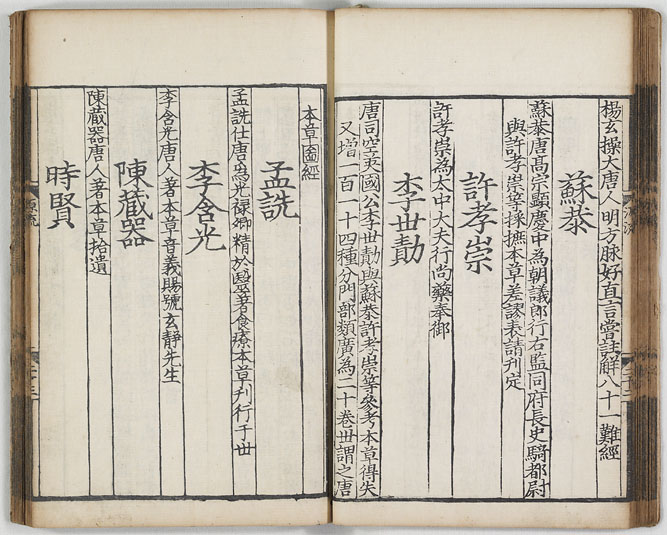 楊玄操大唐人明方脉好直言嘗註觧八十一難經
蘇恭
蘇恭唐髙宗顯慶中為朝議郎行右監同府長史騎都尉
與許孝崇等採摭本草差謬表請刋定
許孝崇
許孝崇為太中大夫行尚藥奉御
李世勣
唐司空英國公李世勣與蘇恭許孝崇等參考本草得失
又增一百一十四種分門部類廣為二十卷世謂之唐
本草圖經
孟詵
孟詵仕唐為光禄卿精於醫藥著食療本草刋行于世
李含光
李含光唐人著本草音義賜號玄静先生
陳藏器
陳藏器唐人著本草拾遺
時賢
源流